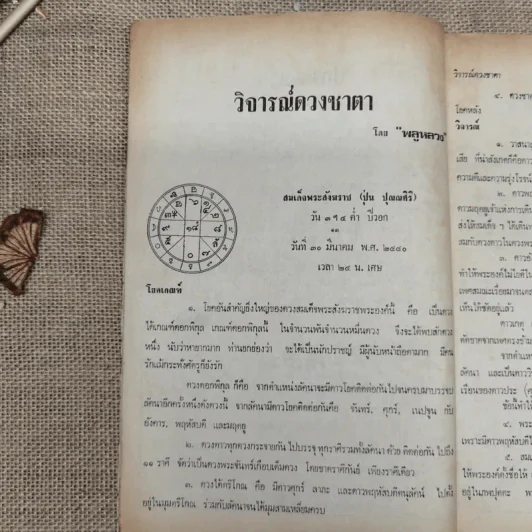 วิจารณ์ดวงชาตา
โดย "พลูหลวง"
สมเด็จพระสังฆราช (ปุ่น ปุณณสิริ)
วัน ๓ ๆ ๔ ค่ำ ปีวอก
๑๑
วันที่ ๓๐ มีนาคม พ.ศ. ๒๔๔๐
เวลา ๒๔ น. เศษ
โชคเกณฑ์
๑. โชคอันสำคัญยิ่งใหญ่ของดวงสมเด็จพระสังฆราชพระองค์นี้ คือ เป็นดวง
ได้เกณฑ์ดอกพิกุล เกณฑ์ดอกพิกุลนี้ ในจำนวนพันจำนวนหมื่นดวง จึงจะได้พบสักดวง
หนึ่ง นับว่าหายากมาก ท่านยกย่องว่า จะได้เป็นนักปราชญ์ มีผู้นับหน้าถือตามาก มีคน
รักแม้กระทั่งศัตรูก็ยังรัก
ดวงดอกพิกุล ก็คือ จากตำแหน่งลัคนาจะมีดาวโชคติดต่อกันไปจนครบมาบรรจบ
ลัคนาอีกครั้งหนึ่งดังดวงนี้ จากลัคนามีดาวโชคติดต่อกันคือ จันทร์, ศุกร์, เนปจูน กับ
อังคาร, พฤหัสบดี และมฤตยู
๒. ดวงดาวทุกดวงกระจายกัน ไปบรรจุ ทุกราศีรวมทั้งลัคนา ด้วย ติดต่อกัน ไปถึง
๑๑ ราศี จัดว่าเป็นดวงพระจันทร์เกือบเต็มดวง โดยขาดราศีกันย์ เพียงราศีเดียว
๓. ดวงได้ตรีโกณ คือ มีดาวศุกร์ ลาภะ และดาวพฤหัสบดีศนุลัคน์ ไปตั้ง
อยู่ในมุมตรีโกณ ร่วมกับลัคนาจนได้มุมสามเหลี่ยมครบ
วิจารณ์ดวงชาตา
๔. ดวงชาตา
โชคหลัง
วิจารณ์
๑. วาสนา
เสีย ที่น่าสังเกตก็คือดาว
ความดีและความรุ่งโรจน์
๒. ดาวพ
ส่งให้สมเด็จ ๆ ได้เดินทาง
สมกับดวงดาวในดวงพระ
๓. ดาวอั
ทำให้พระองค์ไม่ใยดีใน
เห็นได้ชัดอยู่แล้ว
ดาวเกตุ
จากตำแห
ลัคนา และเป็นดาววิ
เรียนของดาวประ (ศุ
ข้อนี้ทำให้
๔. พระ
เพราะมีดาวพฤหัสบดี
๕. สมเ
ให้พระองค์ตั้งชื่อให้